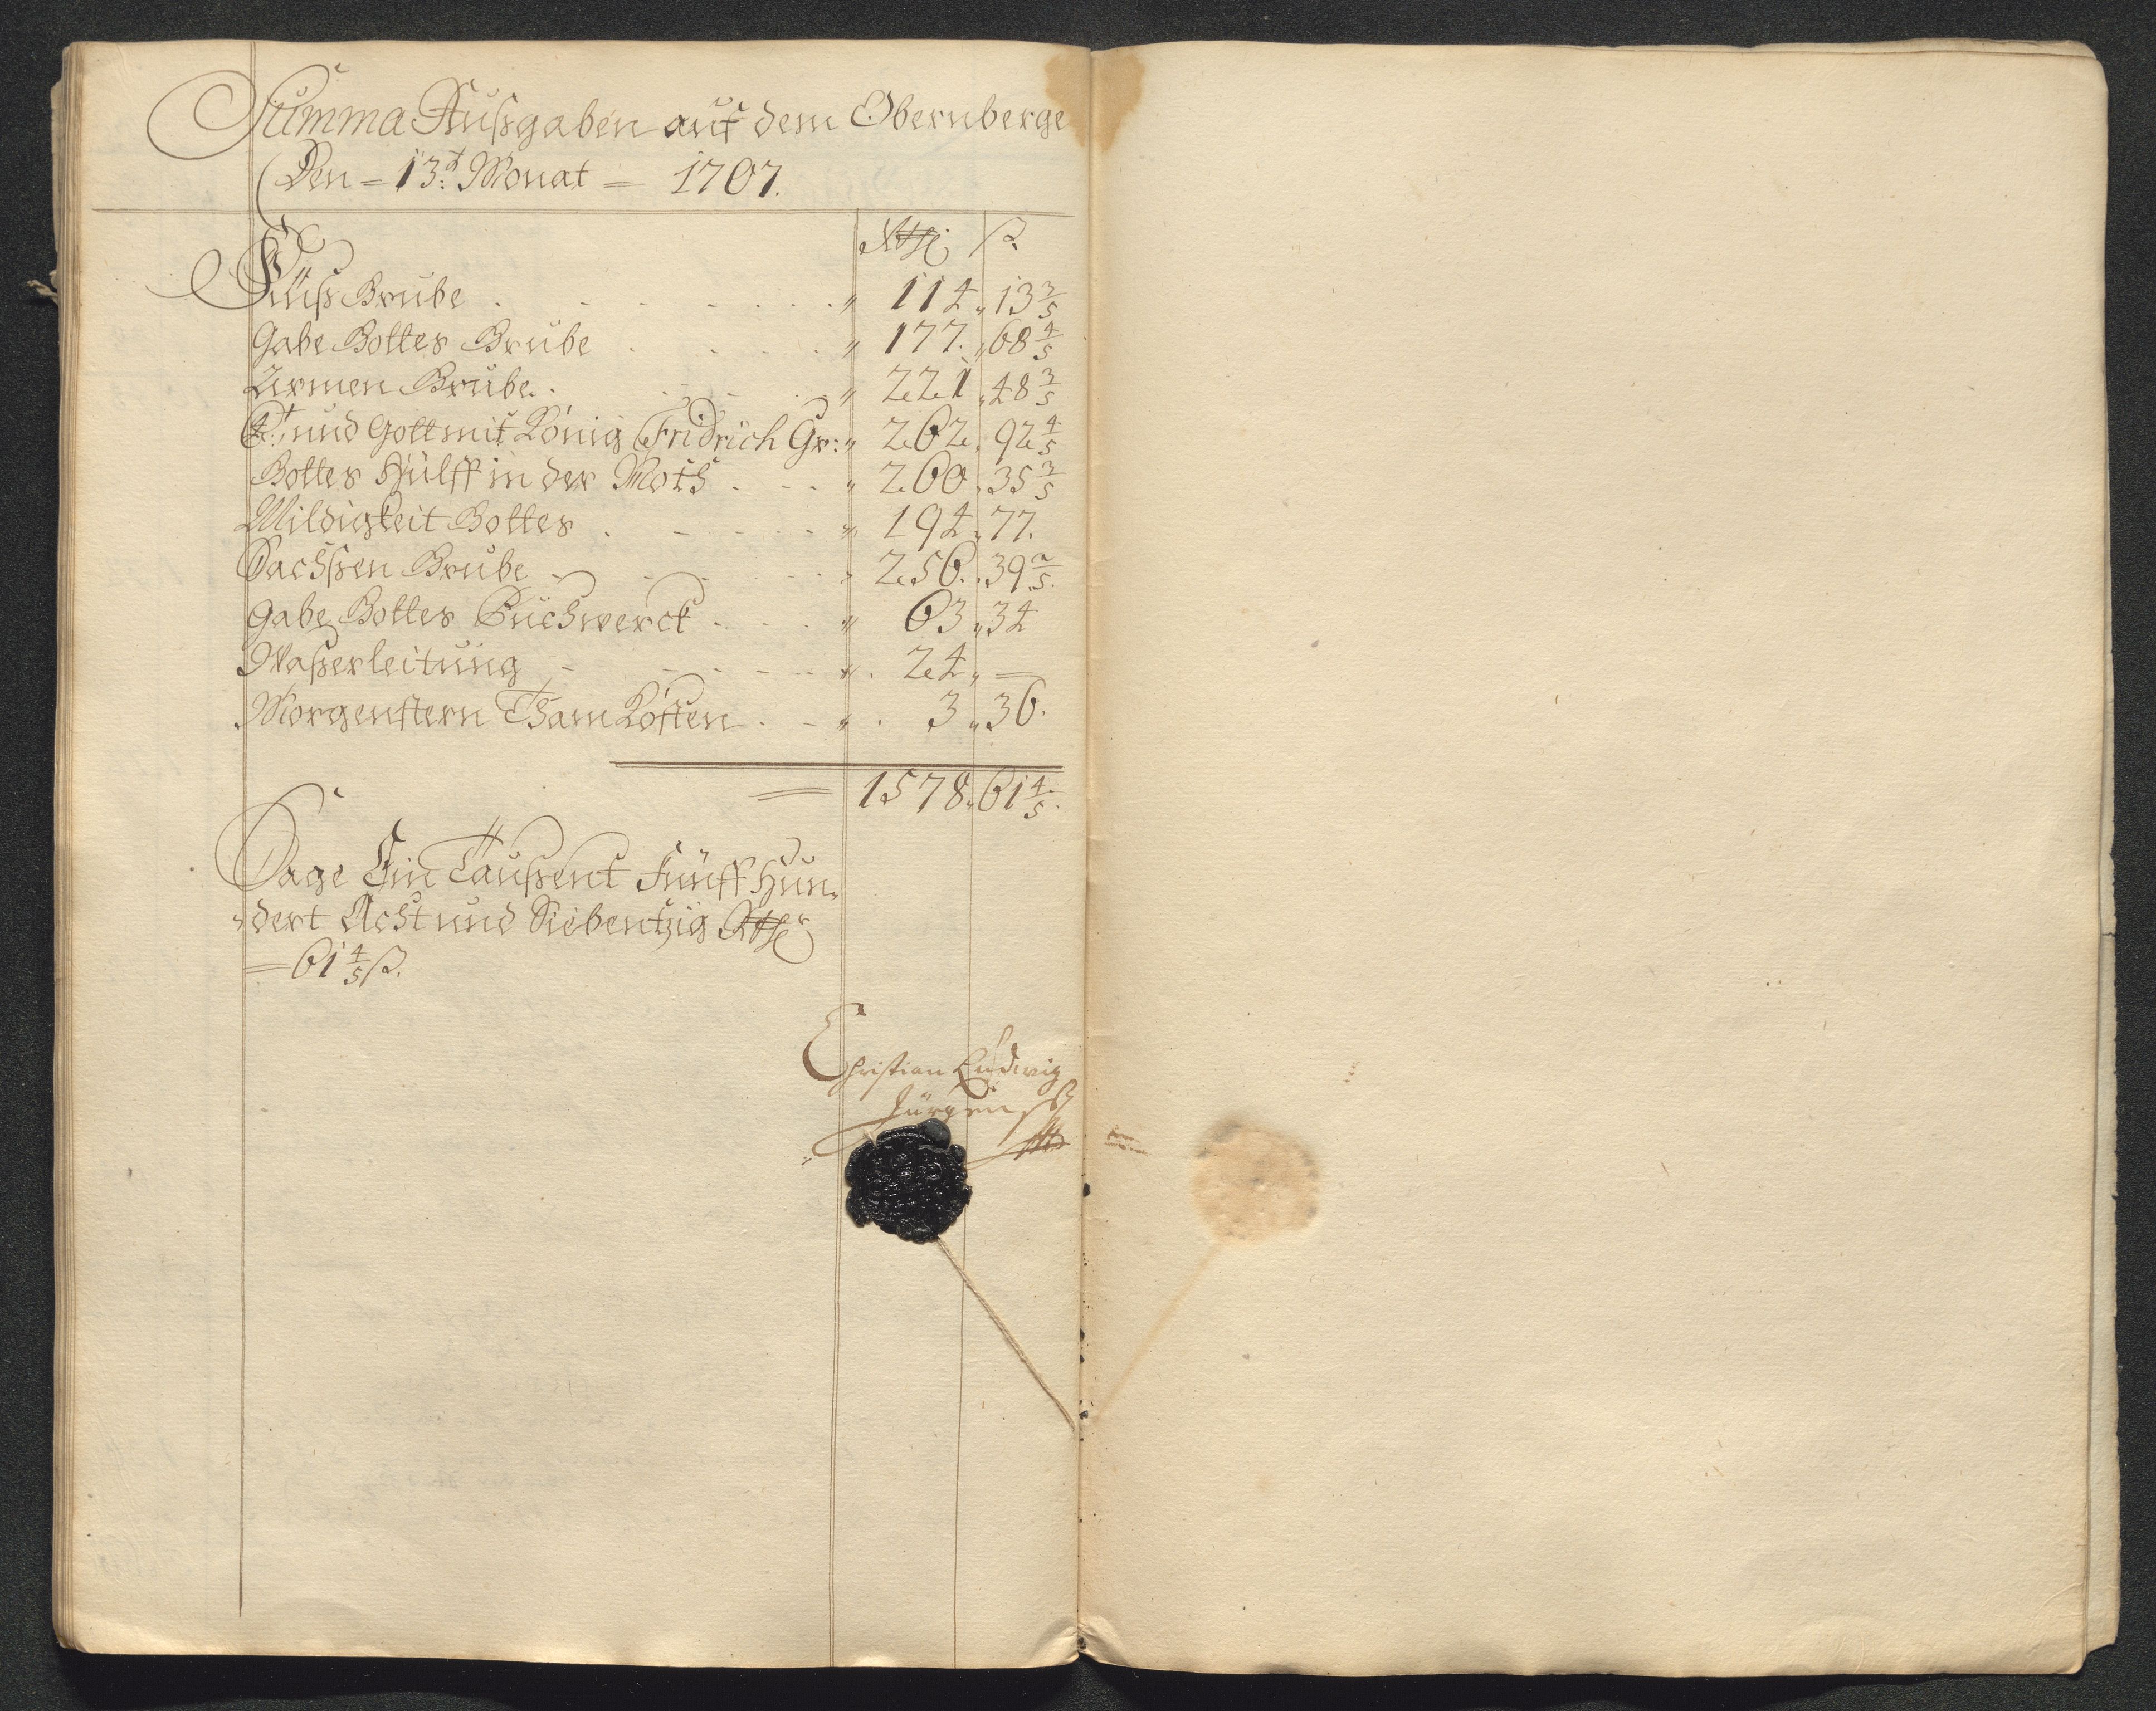 Summa Außgaben auf dem Obernberge
Den = 13t: Monat = 1707.
Rthl: ß.
Grube " 114 " 13 3/5
Gabe Gottes Grube " 177 " 68 4/5
Armen Grube " 221 " 48 3/5
und Gott mit König Fridrich Gr: " 262 " 92 4/5
Gottes Hülff in der Noth " 260 " 35 3/5
Mildigkeit Gottes " 194 " 77.
Sachßen Grube " 256 " 39 2/5.
Gabe Gottes Puchwerck " 63 " 34
Waßerleitung " 24 " —
Morgenstern Tham Kosten " 3 " 36.
= 1578 " 61 4/5.
Sage Ein Taußent Fünff Hun-
dert Acht und Siebentzig Rthlr
= 61 4/5 ß.
Christian Ludwig
Jürgens